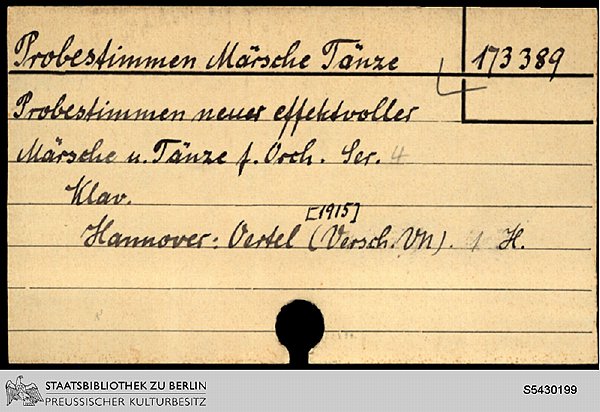 Probestimmen Märsche Tänze 173389
Probestimmen neuer effektvoller
Märsche u. Tänze f. Orch. Ser. 4
Klav.
[1915]
Hannover: Oertel (Versch. Vn). 1 H.
STAATSBIBLIOTHEK ZU BERLIN
PREUSSISCHER KULTURBESITZ
S5430199